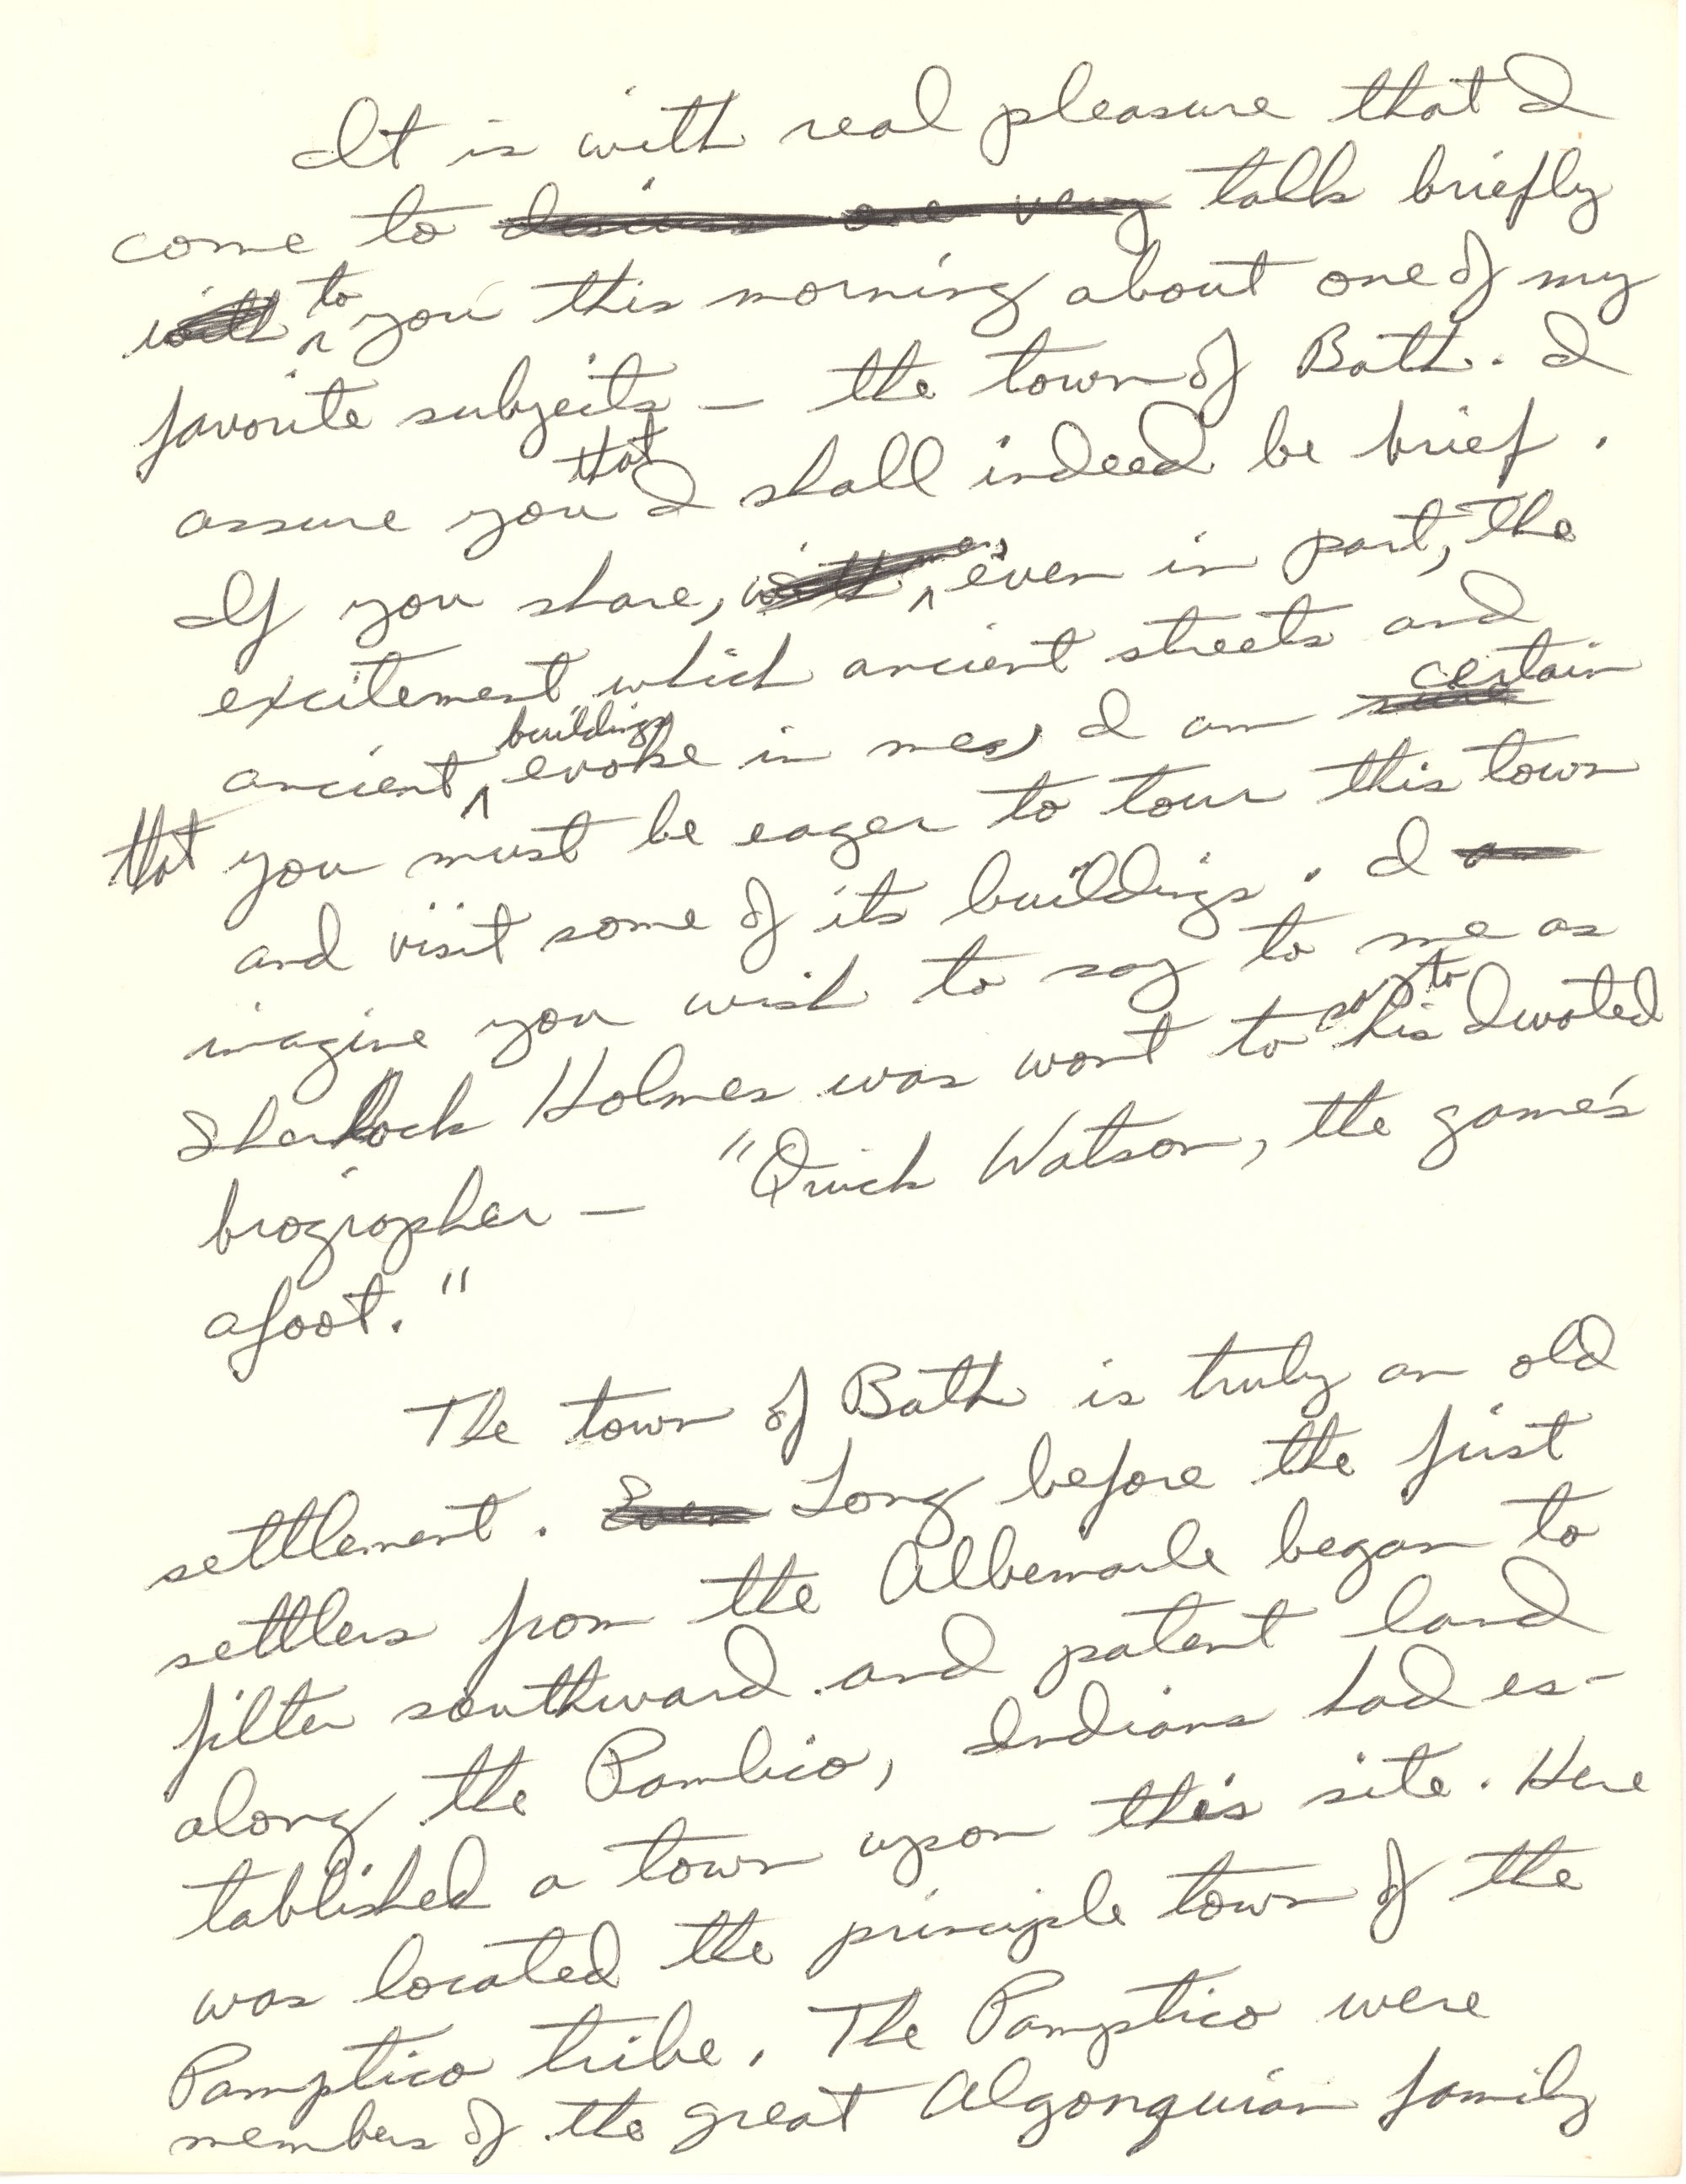 It is with real pleasure that I
come to discuss one very talk briefly
with to you this morning about one of my
favorite subjects – the town of Bath. I
assure you that I shall indeed be brief.
If you share, with me, even in part, the
excitement which ancient streets and
ancient buildings evoke in me, I am sure certain
that you must be eager to tour this town
and visit some of its buildings. I am
imagine you wish to say to me as
Sherlock Holmes was wont to say to his devoted
biographer – "Quick Watson, the game's
afoot."
The town of Bath is truly an old
settlement. Even Long before the first
settlers from the Albemarle began to
filter southward and patent land
along the Pamlico, Indians had es-
tablished a town upon this site. Here
was located the principle town of the
Pamptico tribe. The Pamptico were
members of the great Algonquian family